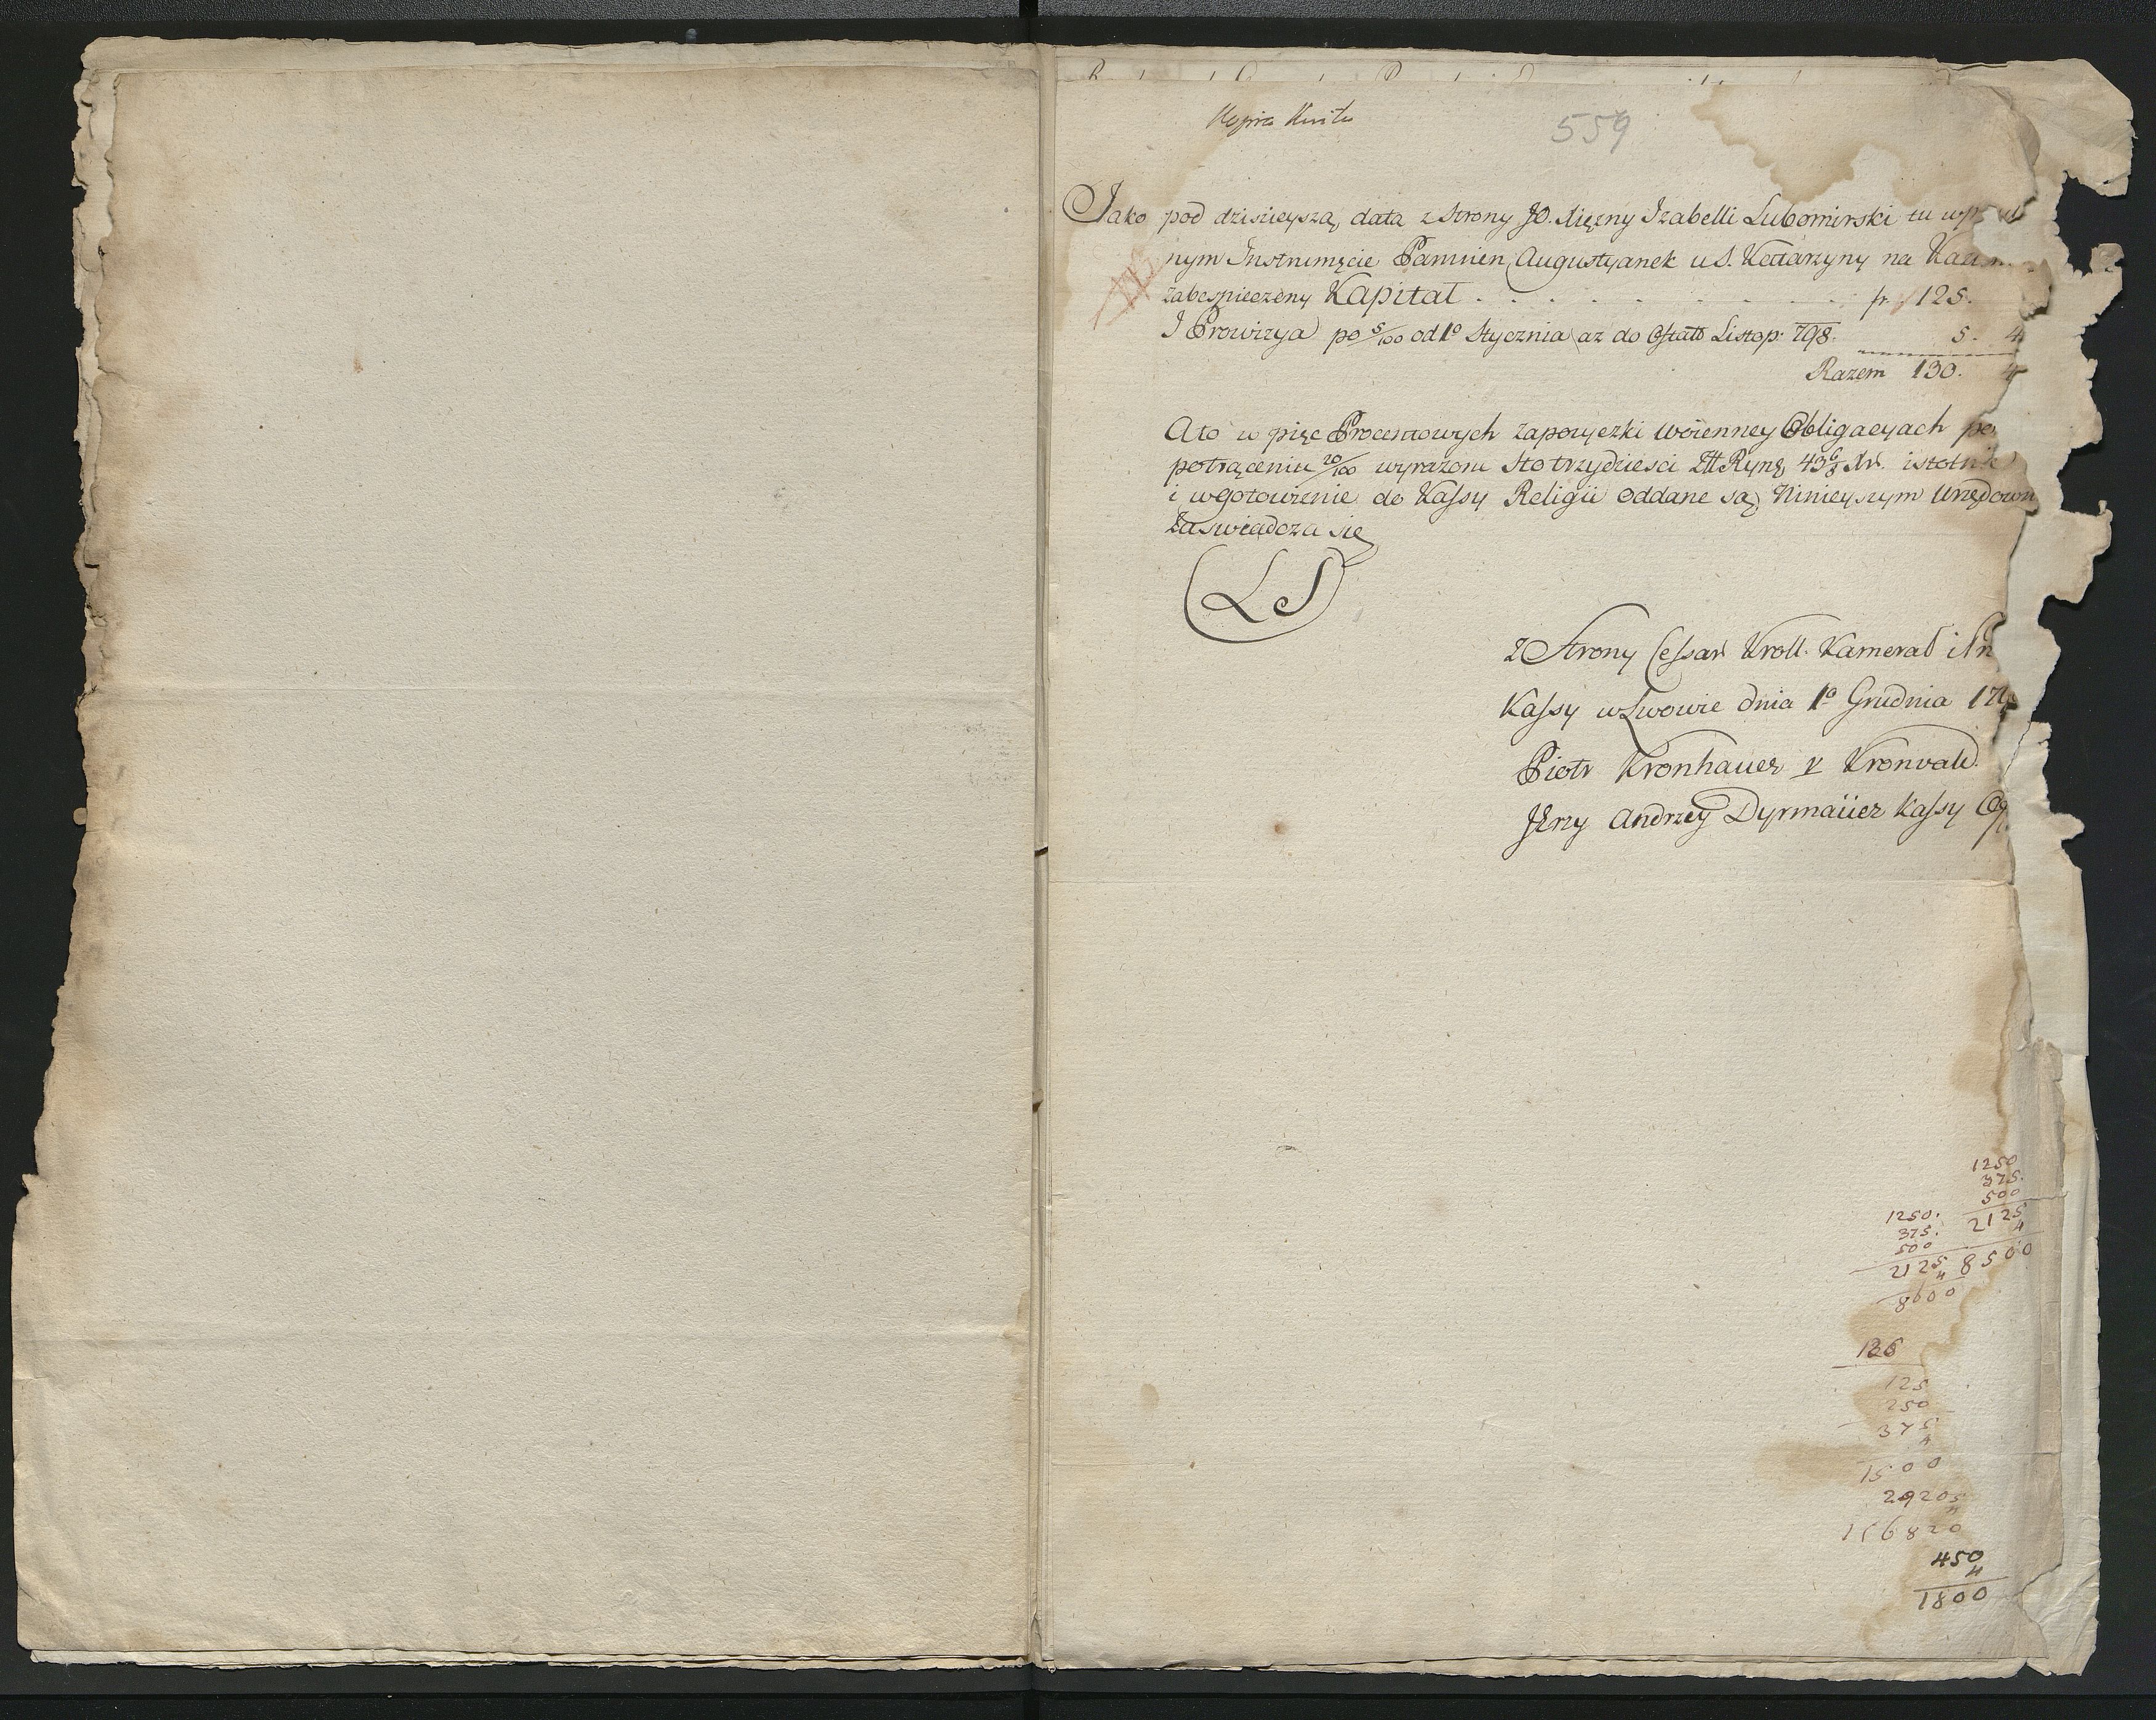 Kopia Kwitu
559
Jako pod dzisieyszą datą z Strony JO. Xiężny Izabelli Lubomirski tu
nym Instrumęcie Pannien Augustyanek u S. Katarzyny na
zabespieczony Kapitał . . . . . . . . . . fr. 125.
I Prowizya po 5/100 od 1º Stycznia az do Ostatº Listop: 798. 5. 4
Razem 130. 4
Ato w pięc Procentowych zapożyczki woienney Obligacyach po
potrąceniu 20/100 wyrazone Sto trzydziesci Złł Ryng 43 6/8 Xr. istotnie
i wgotowiznie do Kassy Religii oddane są, Ninieyszym Urzędown
Zaswiadcza się
LS
Z Strony Cessar Kroll. Kameral i
Kassy w Lwowie dnia 1º Grudnia 17
Piotr Kronhauer v Kronvald.
Jerzy Andrzey Dyrmaüer Kassy
1250
375.
500
2125
4
8500
1250.
375.
500
2125
4
8600
125
250
375
4
1500
29205
4
116820
450
4
1800